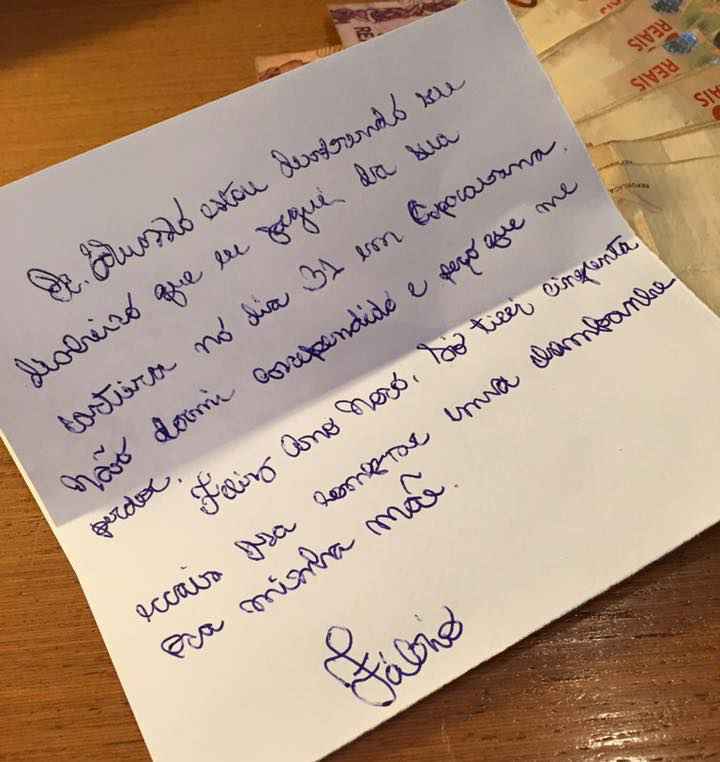 Dr. Eduardo estou devolvendo seu
dinheiro que eu peguei da sua
carteira no dia 31 em Copacabana.
Não dormi arrependido e peço que me
perdoe. Feliz Ano Novo. Só tirei cinquenta
reais pra comprar uma champanhe
pra minha mãe.
Fábio
REAIS
REAIS
REAIS